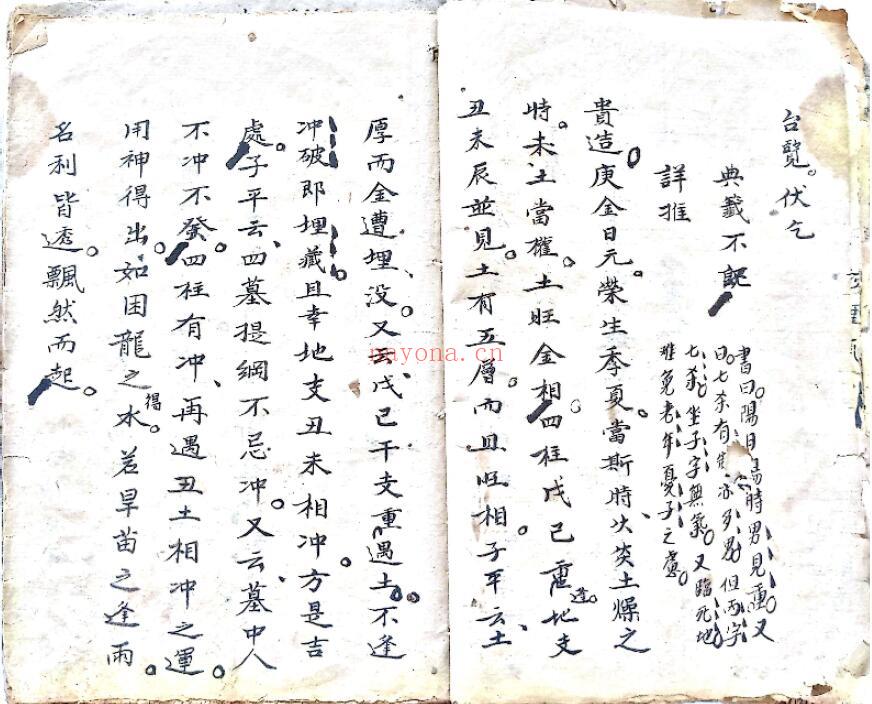 台覽。伏乞
典籤不
詳推
書曰。陽日陽時男見重。又
曰。七杀有亦列但丙字
七杀。坐子字無氣。又臨死地
难免老年憂子之慮。
貴造。庚金日元。榮生季夏。當斯時、火炎土燥之
時。未土當權。土旺金相。四柱戊己重逢。地支
丑未辰並見。土有五層。而且旺相。子平云、土
厚而金遭埋没。又云、戊己干支重遇土。不逢
冲破即埋藏。且幸地支丑未相冲。方是吉
處。子平云、四墓提綱不忌冲。又云、墓中人
不冲不發。四柱有冲、再遇丑土相冲之運。
用神得出。如困龍之得水。若旱苗之逢雨。
名利皆透。飄然而起。
nayona.cn